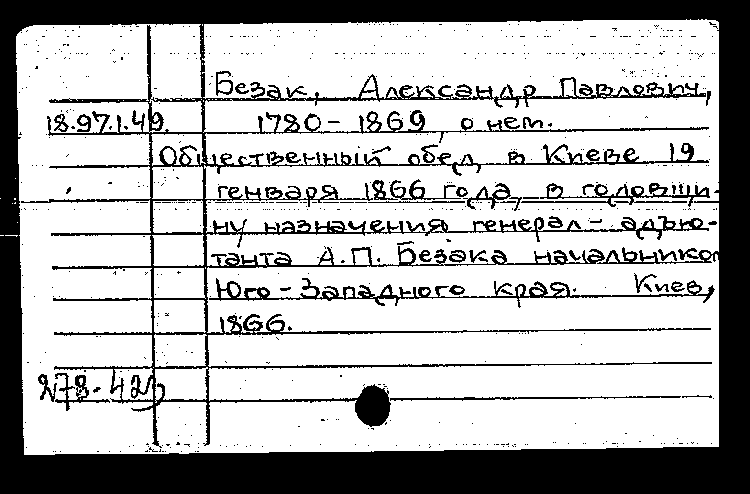 Безак, Александр Павлович,
18.97.1.49. 1780-1869, о нем.
Общественный обед, в Киеве 19
генваря 1866 года, в годовщи-
ну назначения генерал-адъю-
танта А.П. Безака начальником
Юго-Западного края. Киев,
1866.